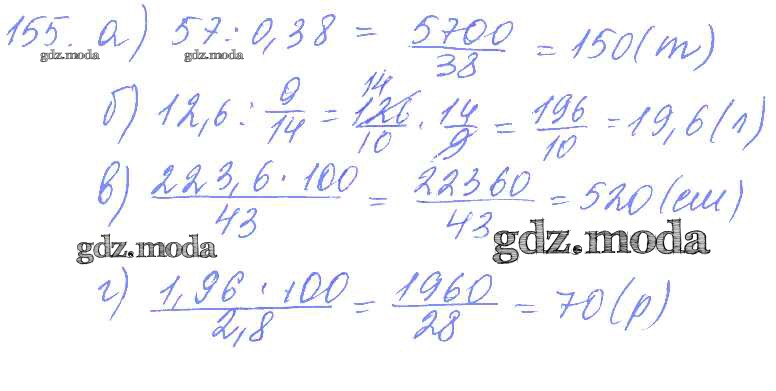 155. а) 57 : 0,38 = 5700/38 = 150 (т)
gdz.moda gdz.moda
б) 12,6 : 9/14 = 126/10 · 14/9 = 196/10 = 19,6 (л)
14
в) 223,6 · 100/43 = 22360/43 = 520 (см)
gdz.moda gdz.moda
г) 1,96 · 100/2,8 = 1960/28 = 70 (р)